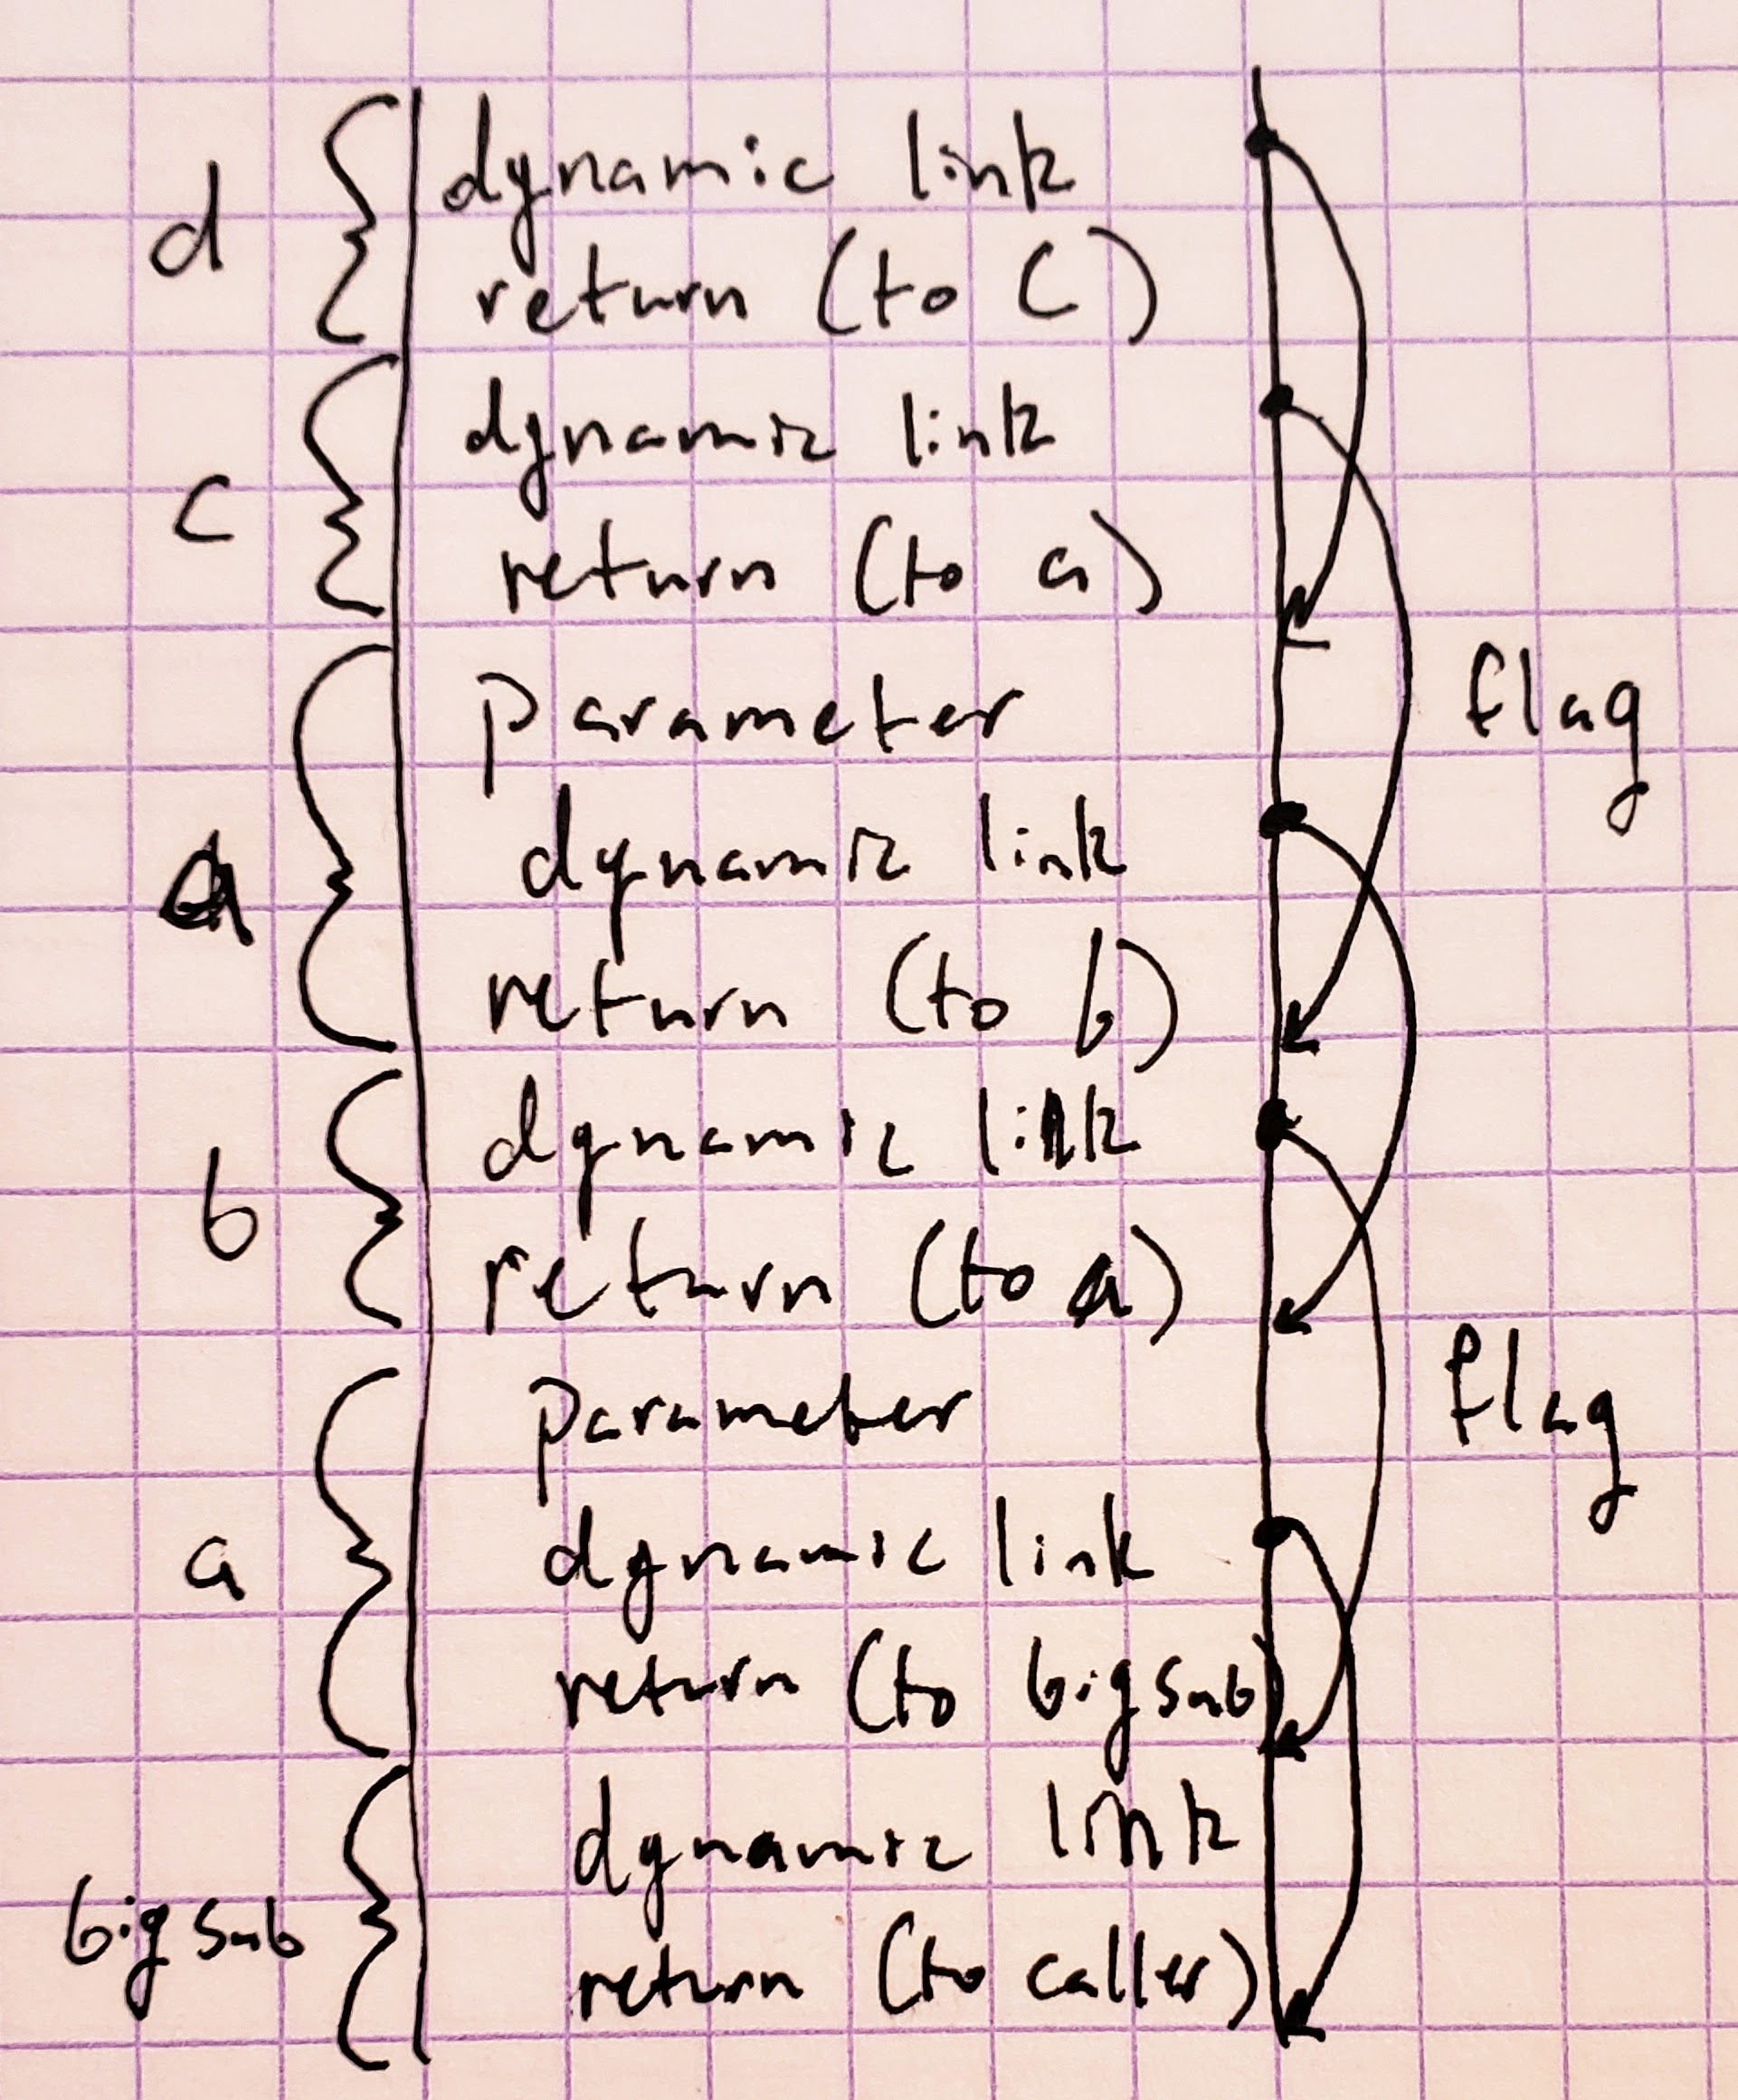 d
dynamic link
return (to c)
c
dynamic link
return (to a)
parameter
flag
a
dynamic link
return (to b)
b
dynamic link
return (to a)
parameter
flag
a
dynamic link
return (to bigsub)
bigsub
dynamic link
return (to caller)